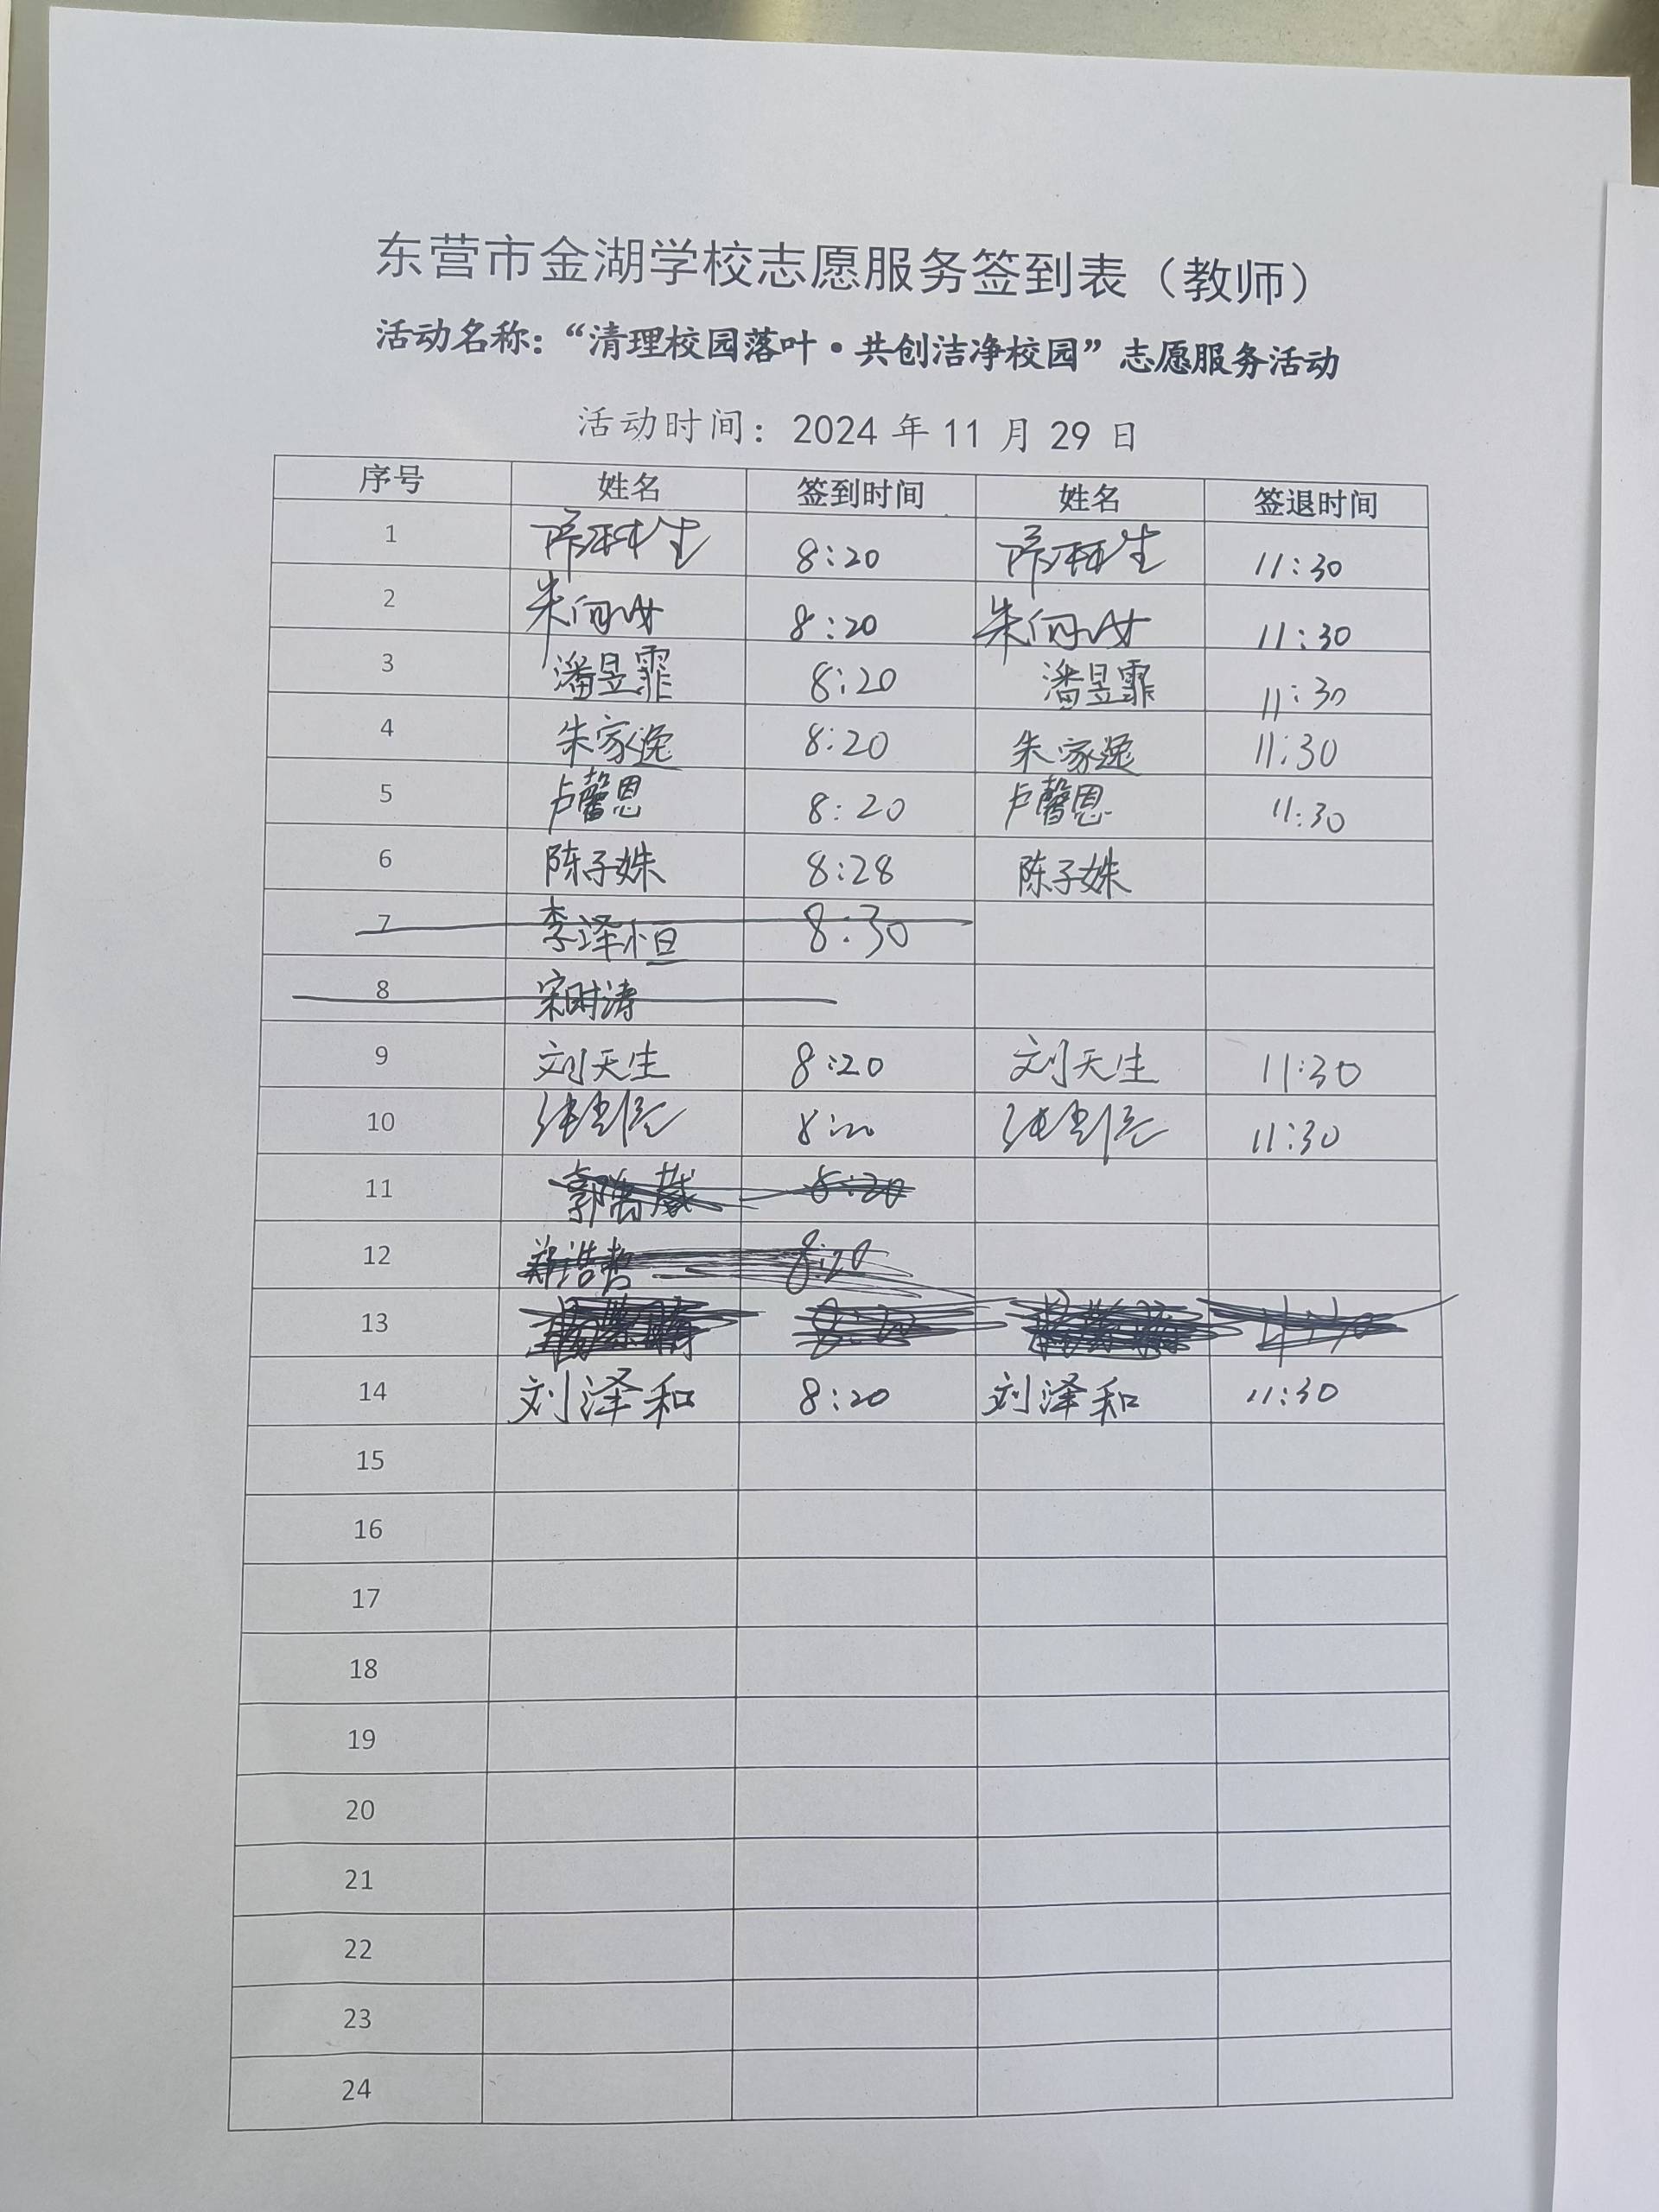 东营市金湖学校志愿服务签到表（教师）
活动名称：“清理校园落叶·共创洁净校园”志愿服务活动
活动时间：2024 年 11 月 29 日
序号 姓名 签到时间 姓名 签退时间
1 8:20 11:30
2 朱 8:20 朱 11:30
3 潘昱霏 8:20 潘昱霏 11:30
4 朱家逸 8:20 朱家逸 11:30
5 卢馨恩 8:20 卢馨恩 11:30
6 陈子姝 8:28 陈子姝
7 李泽恒 8:30
8 宋时涛
9 刘天生 8:20 刘天生 11:30
10 8:20 11:30
11 8:20
12 郑浩哲 8:20
13
14 刘泽和 8:20 刘泽和 11:30
15
16
17
18
19
20
21
22
23
24